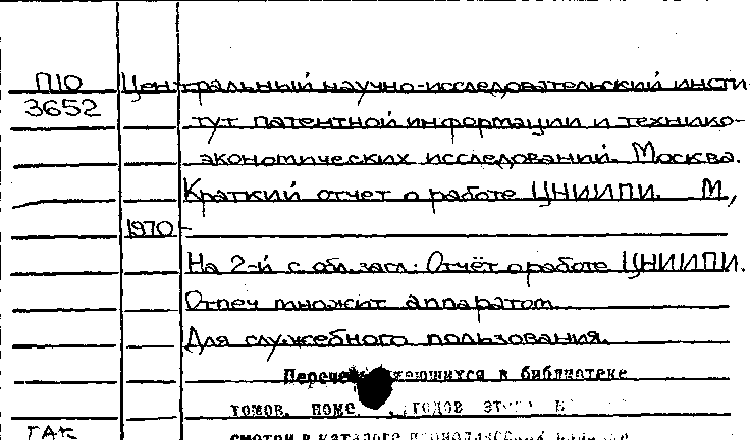 П10 Централььный научно-исследовательский инсти
3652 тут патентной информации и технико-
экономических исследований. Москва.
Краткий отчет о работе ЦНИИПИ. М,
1970-
На 2-й с обл. загл.: Отчёт о работе ЦНИИПИ.
Отпеч множит аппаратом.
Для служебного пользования.
в библиотеке
томов,
ГАК смотри в каталоге